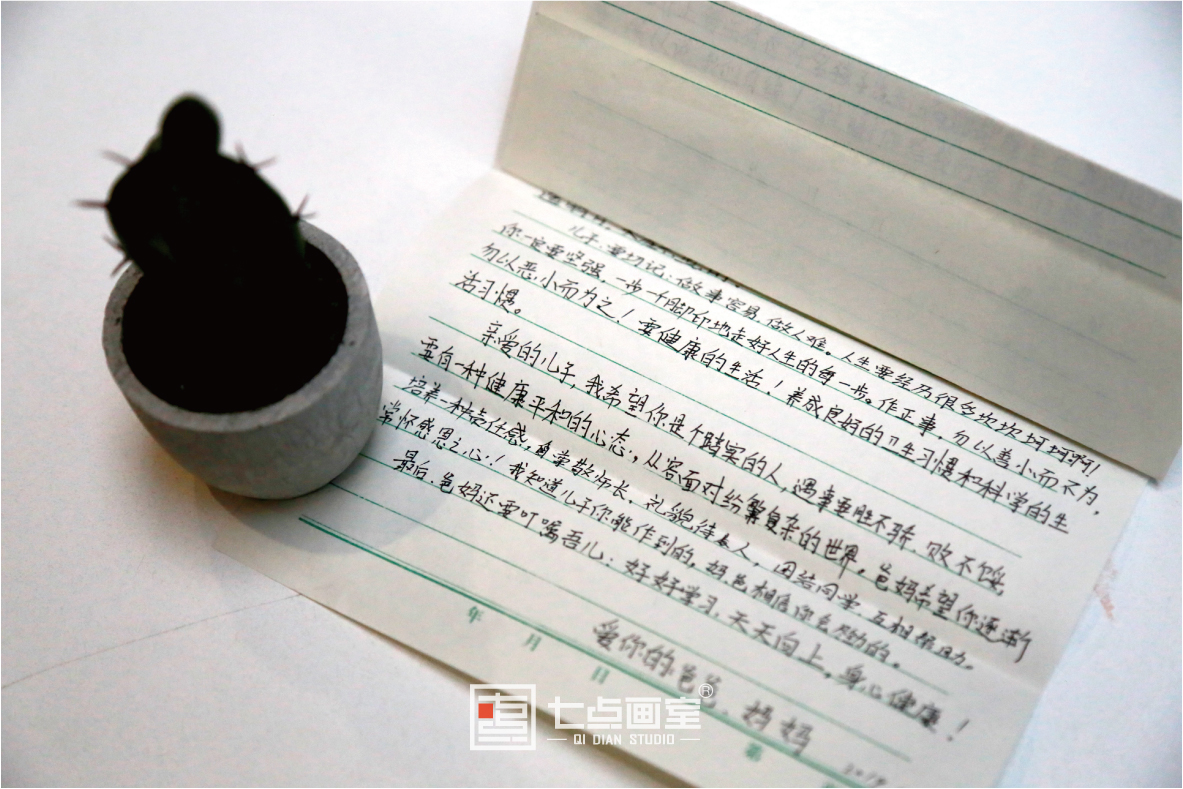 儿子:要切记:做事容易,做人难。人生要经历很多坎坎坷坷啊!
你一定要坚强,一步一个脚印地走好人生的每一步。作正事,勿以善小而不为,
勿以恶小而为之!要健康的生活!养成良好的卫生习惯和科学的生
活习惯。
亲爱的儿子,我希望你是个踏实的人,遇事要胜不骄、败不馁,
要有一种健康平和的心态,从容面对纷繁复杂的世界。爸妈希望你逐渐
培养一种责任感,自尊敬师长、礼貌待人,团结同学,互相帮助。
常怀感恩之心!我知道儿子你能作到的,妈爸相信你的。
最后,爸妈还要叮嘱吾儿:好好学习,天天向上,身心健康!
爱你的爸爸、妈妈
年 月 日
第
七点画室®
QI DIAN STUDIO